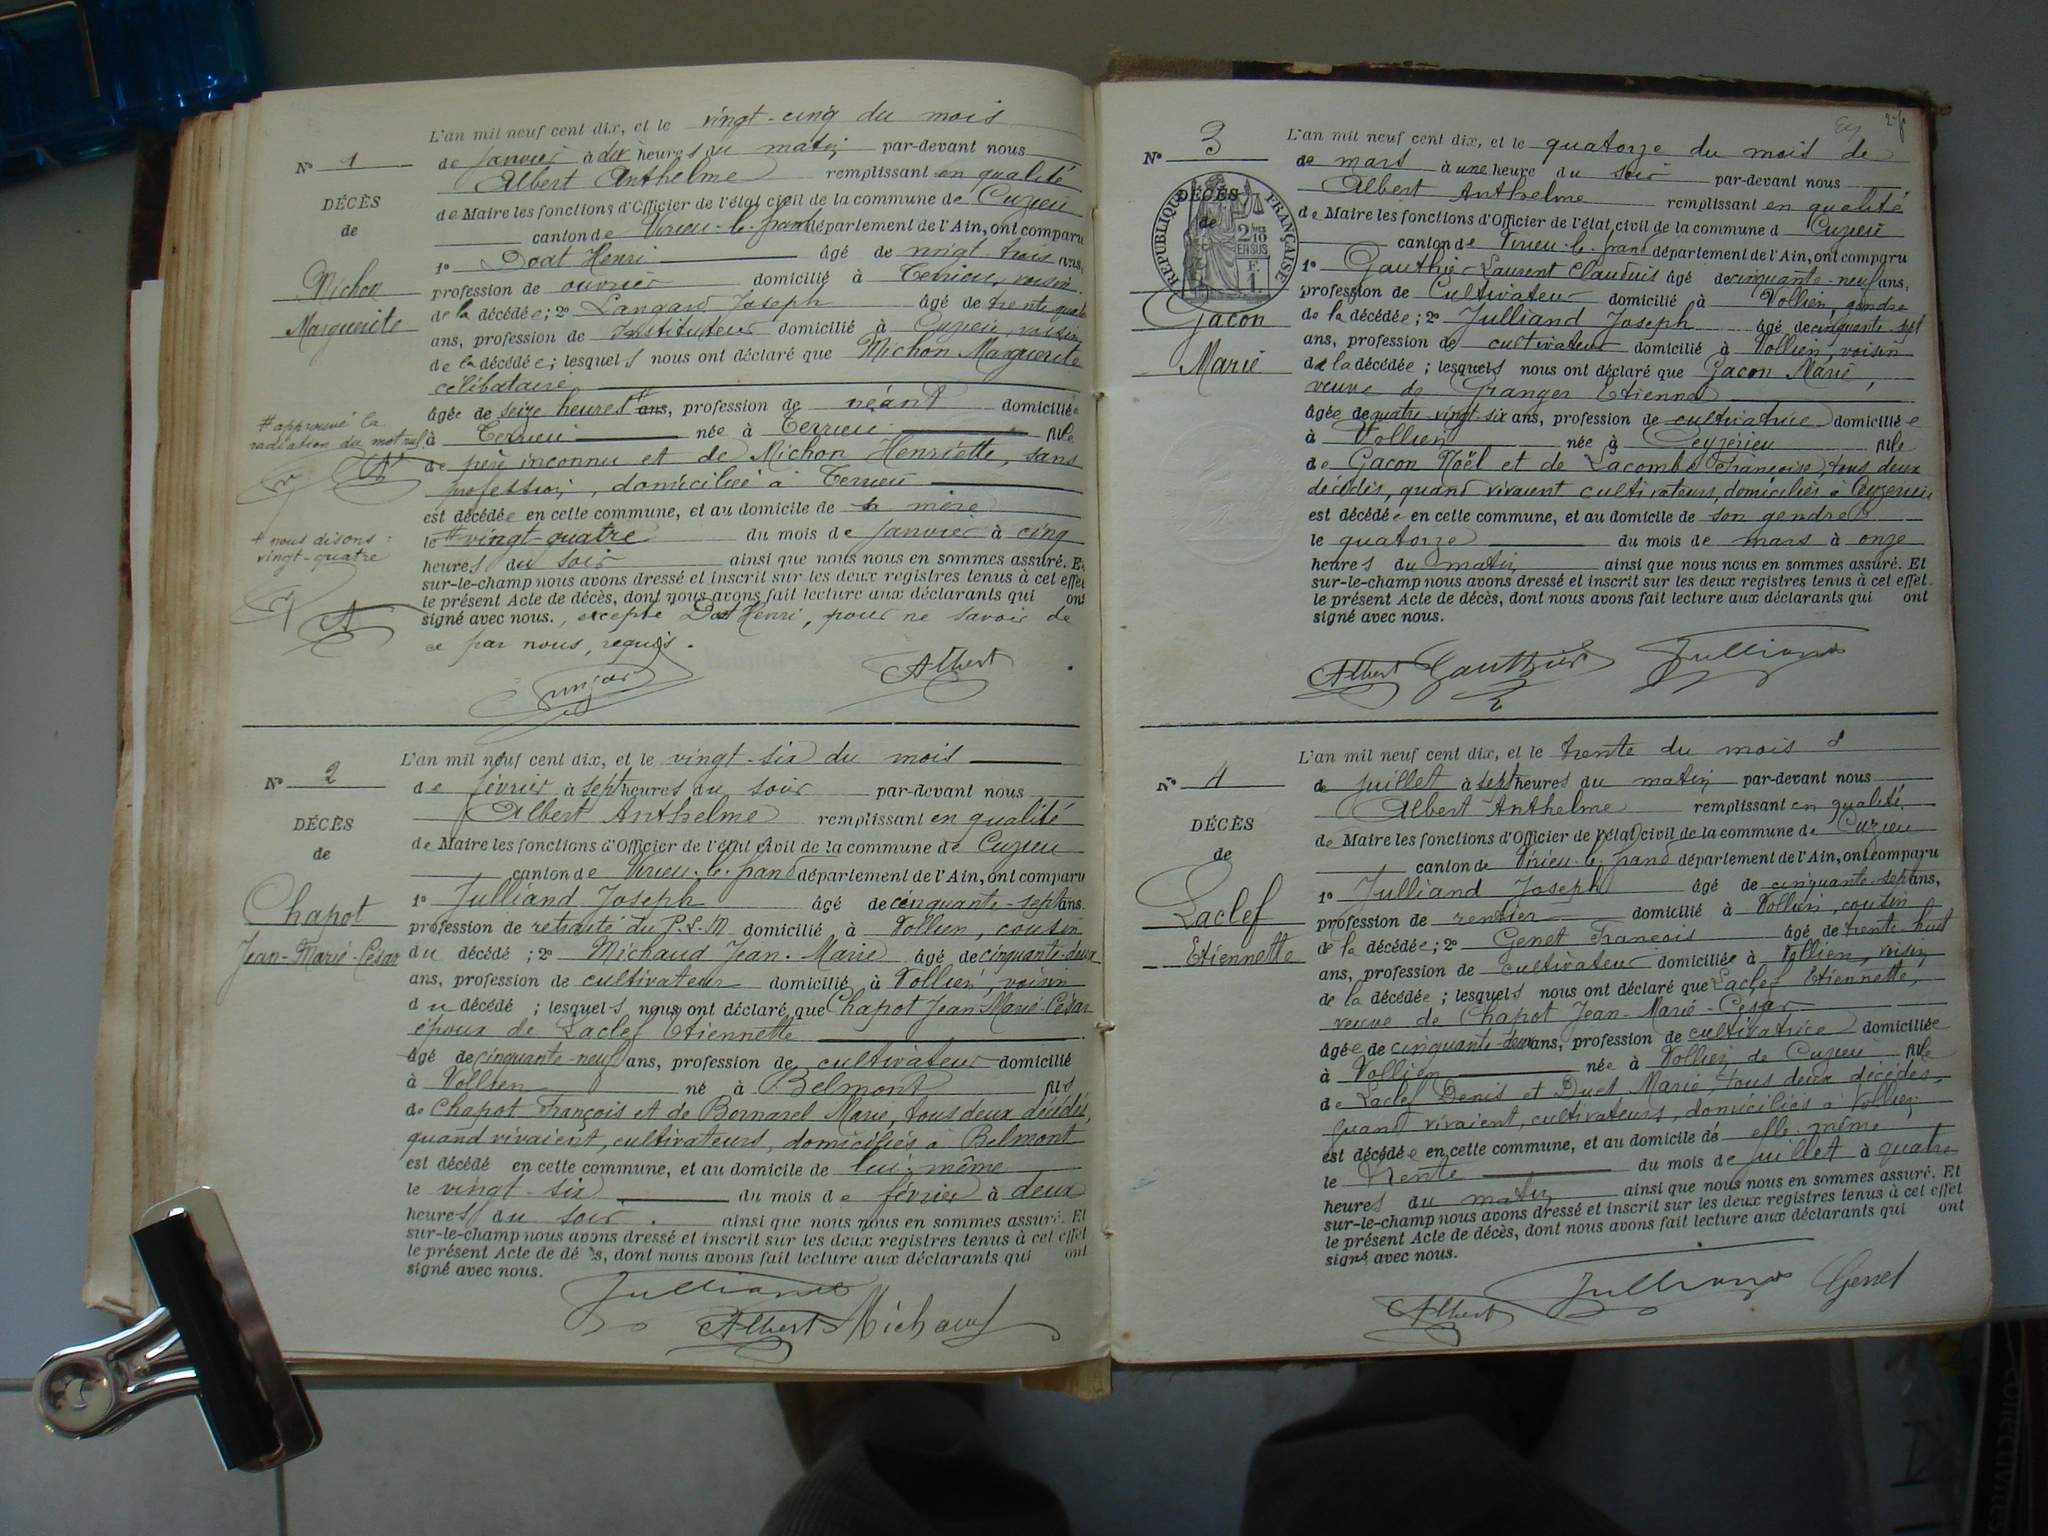 L'an mil neuf cent dix, et le vingt-cinq du mois
N° 1 de janvier à dix heures du matin par-devant nous
Albert Anthelme remplissant en qualité
DÉCÈS
de Maire les fonctions d'Officier de l'état civil de la commune de Cuzieu
de
canton de Virieu-le-grand département de l'Ain, ont comparu
1° Doat Henri âgé de vingt-trois ans,
Michon
profession de ouvrier domicilié à voisin
Marguerite
de la décédée; 2° Joseph âgé de trente quatre
ans, profession de Instituteur domicilié à Cuzieu, voisin
de la décédée; lesquels nous ont déclaré que Michon Marguerite
célibataire
âgée de seize heures # ans, profession de néant domiciliée
# approuvé la
radiation du mot nul
à née à fille
de père inconnu et de Michon Henriette, sans
profession, domiciliée à
est décédée en cette commune, et au domicile de sa mère
# nous disons :
vingt-quatre
le # vingt-quatre du mois de janvier à cinq
heures du soir ainsi que nous nous en sommes assuré. Et
sur-le-champ nous avons dressé et inscrit sur les deux registres tenus à cet effet
le présent Acte de décès, dont nous avons fait lecture aux déclarants qui ont
signé avec nous., excepté Doat Henri, pour ne savoir de
ce par nous, requis.
Albert
L'an mil neuf cent dix, et le vingt-six du mois
N° 2 de février à sept heures du soir par-devant nous
Albert Anthelme remplissant en qualité
DÉCÈS
de Maire les fonctions d'Officier de l'état civil de la commune de Cuzieu
de
canton de Virieu-le-grand département de l'Ain, ont comparu
1° Julliand Joseph âgé de cinquante-sept ans.
Chapot
profession de retraité du P.L.M domicilié à Vollien, cousin
Jean-Marie-César
du décédé ; 2° Michaud Jean-Marie âgé de cinquante-deux
ans, profession de cultivateur domicilié à Vollien, voisin
du décédé ; lesquels nous ont déclaré que Chapot Jean-Marie-César
époux de Laclef Etiennette
âgé de cinquante-neuf ans, profession de cultivateur domicilié
à Vollien né à Belmont fils
de Chapot François et de Bornarel Marie, tous deux décédés,
quand vivaient, cultivateurs, domiciliés à Belmont
est décédé en cette commune, et au domicile de lui-même
le vingt-six du mois de février à deux
heures du soir. ainsi que nous nous en sommes assuré. Et
sur-le-champ nous avons dressé et inscrit sur les deux registres tenus à cet effet
le présent Acte de décès, dont nous avons fait lecture aux déclarants qui ont
signé avec nous.
Julliand
Albert Michaud
L'an mil neuf cent dix, et le quatorze du mois de
N° 3 de mars à une heure du soir par-devant nous
Albert Anthelme remplissant en qualité
DÉCÈS
de
RÉPUBLIQUE FRANÇAISE
2/10 EN SUS
de Maire les fonctions d'Officier de l'état civil de la commune d Cuzieu
canton de Virieu-le-grand département de l'Ain, ont comparu
1° Gauthier Laurent Claudius âgé de cinquante-neuf ans,
profession de Cultivateur domicilié à Vollien, gendre
Gacon
de la décédée; 2° Julliand Joseph âgé de cinquante-sept
ans, profession de cultivateur domicilié à Vollien, voisin
Marie
de la décédée ; lesquels nous ont déclaré que Gacon Marie,
veuve de Granger Etienne
âgée de quatre-vingt-six ans, profession de cultivatrice domiciliée
à Vollien née à Ceyzérieu fille
de Gacon Noël et de Lacombe Françoise, tous deux
décédés, quand vivaient cultivateurs, domiciliés à Ceyzérieu
est décédée en cette commune, et au domicile de son gendre
le quatorze du mois de mars à onze
heures du matin ainsi que nous nous en sommes assuré. Et
sur-le-champ nous avons dressé et inscrit sur les deux registres tenus à cet effet
le présent Acte de décès, dont nous avons fait lecture aux déclarants qui ont
signé avec nous.
Albert Gauthier Julliand
L'an mil neuf cent dix, et le trente du mois d
N° 4 de juillet à sept heures du matin par-devant nous
Albert Anthelme remplissant en qualité
DÉCÈS
de Maire les fonctions d'Officier de l'état civil de la commune de Cuzieu
de
canton de Virieu-le-grand département de l'Ain, ont comparu
1° Julliand Joseph âgé de cinquante-sept ans,
Laclef
profession de rentier domicilié à Vollien, cousin
Etiennette
de la décédée; 2° Genet François âgé de trente-huit
ans, profession de cultivateur domicilié à Vollien, voisin
de la décédée ; lesquels nous ont déclaré que Laclef Etiennette,
veuve de Chapot Jean-Marie-César
âgée de cinquante-deux ans, profession de cultivatrice domiciliée
à Vollien née à Vollien de Cuzieu fille
de Laclef Denis et Duet Marie, tous deux décédés,
quand vivaient, cultivateurs, domiciliés à Vollien
est décédée en cette commune, et au domicile de elle-même
le trente du mois de juillet à quatre
heures du matin ainsi que nous nous en sommes assuré. Et
sur-le-champ nous avons dressé et inscrit sur les deux registres tenus à cet effet
le présent Acte de décès, dont nous avons fait lecture aux déclarants qui ont
signé avec nous.
Albert Julliand Genet